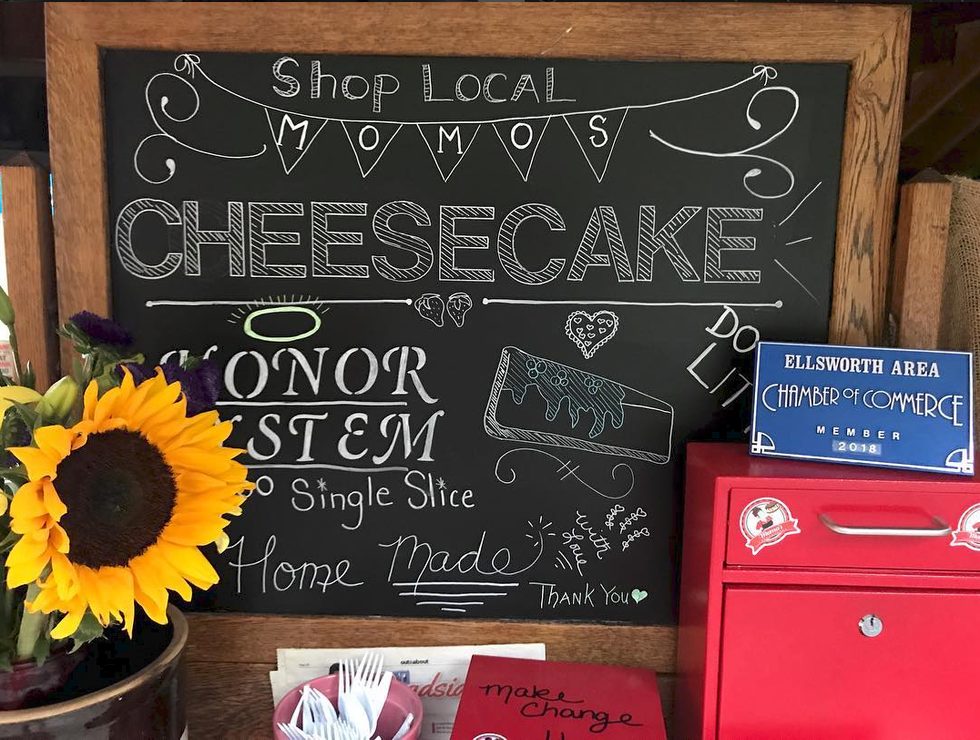 Shop Local
MOMOS
CHEESECAKE
HONOR
SYSTEM
Single Slice
Home Made
with
love
THANK YOU
DO
LIT
ELLSWORTH AREA
CHAMBER OF COMMERCE
MEMBER
2018
out&about
make
change